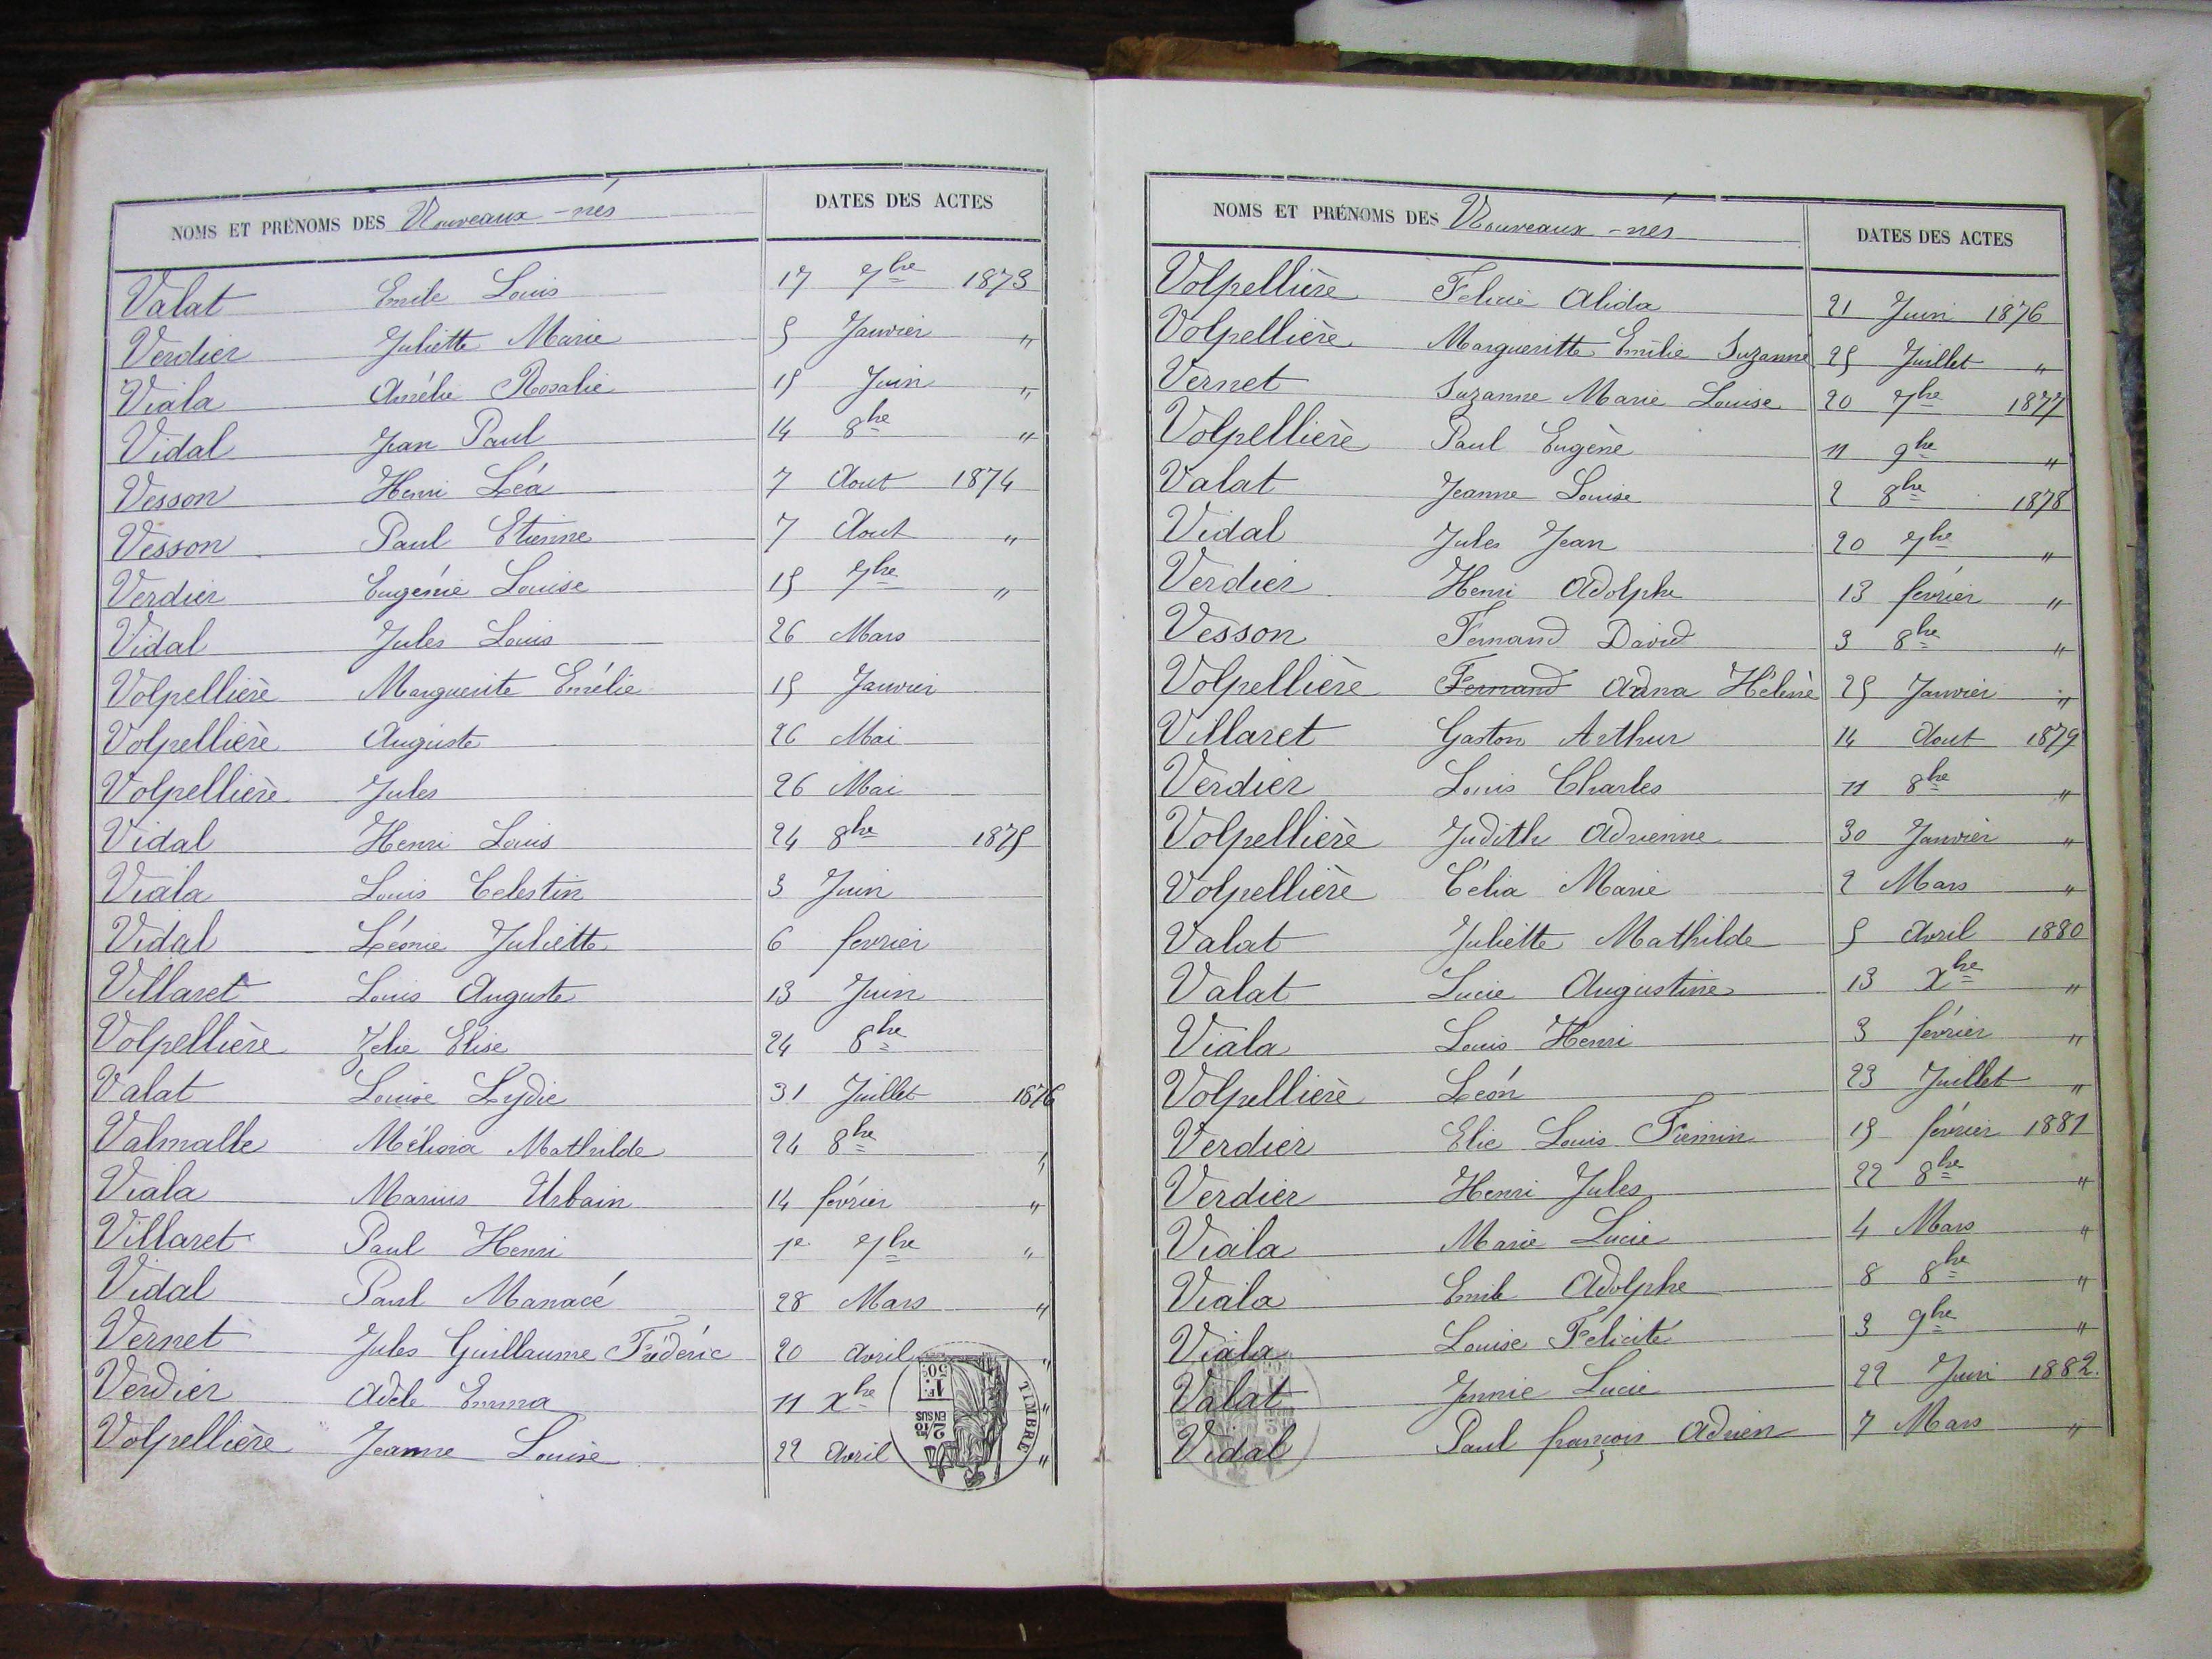 NOMS ET PRÉNOMS DES Nouveaux-nés DATES DES ACTES
Valat Emile Louis 17 7bre 1873
Verdier Juliette Marie 5 Janvier "
Viala Amélie Rosalie 15 Juin "
Vidal Jean Paul 14 8bre "
Vesson Henri Léa 7 Aout 1874
Vesson Paul Etienne 7 Aout "
Verdier Eugénie Louise 15 7bre "
Vidal Jules Louis 26 Mars
Volpellière Marguerite Emélie 15 Janvier
Volpellière Auguste 26 Mai
Volpellière Jules 26 Mai
Vidal Henri Louis 24 8bre 1875
Viala Louis Celestin 3 Juin
Vidal Léonie Juliette 6 fevrier
Villaret Louis Auguste 13 Juin
Volpellière Zelie Elise 24 8bre
Valat Louise Lydie 31 Juillet 1876
Valmalle Mathilde 24 8bre "
Viala Marius Urbain 14 février "
Villaret Paul Henri 1e 7bre "
Vidal Paul Manacé 28 Mars "
Vernet Jules Guillaume Frédéric 20 Avril "
Verdier Adèle Emma 11 Xbre "
Volpellière Jeanne Louise 22 Avril "
1F 50c
2/10 EN SUS
TIMBRE
NOMS ET PRÉNOMS DES Nouveaux-nés DATES DES ACTES
Volpellière Felicie Alida 21 Juin 1876
Volpellière Margueritte Emilie Suzanne 25 Juillet "
Vernet Suzanne Marie Louise 20 7bre 1877
Volpellière Paul Eugène 11 9bre "
Valat Jeanne Louise 2 8bre 1878
Vidal Jules Jean 20 7bre "
Verdier Henri Adolphe 13 février "
Vesson Fernand David 3 8bre "
Volpellière Fernand Adna Hélène 25 Janvier "
Villaret Gaston Arthur 14 Aout 1879
Verdier Louis Charles 11 8bre "
Volpellière Judith Adrienne 30 Janvier "
Volpellière Célia Marie 2 Mars "
Valat Juliette Mathilde 5 Avril 1880
Valat Lucie Augustine 13 Xbre "
Viala Louis Henri 3 février "
Volpellière Léon 23 Juillet "
Verdier Elie Louis Firmin 15 février 1881
Verdier Henri Jules 22 8bre "
Viala Marie Lucie 4 Mars "
Viala Emile Adolphe 8 8bre "
Viala Louise Félicité 3 9bre "
Valat Jennie Lucie 22 Juin 1882.
Vidal Paul françois Adrien 7 Mars "